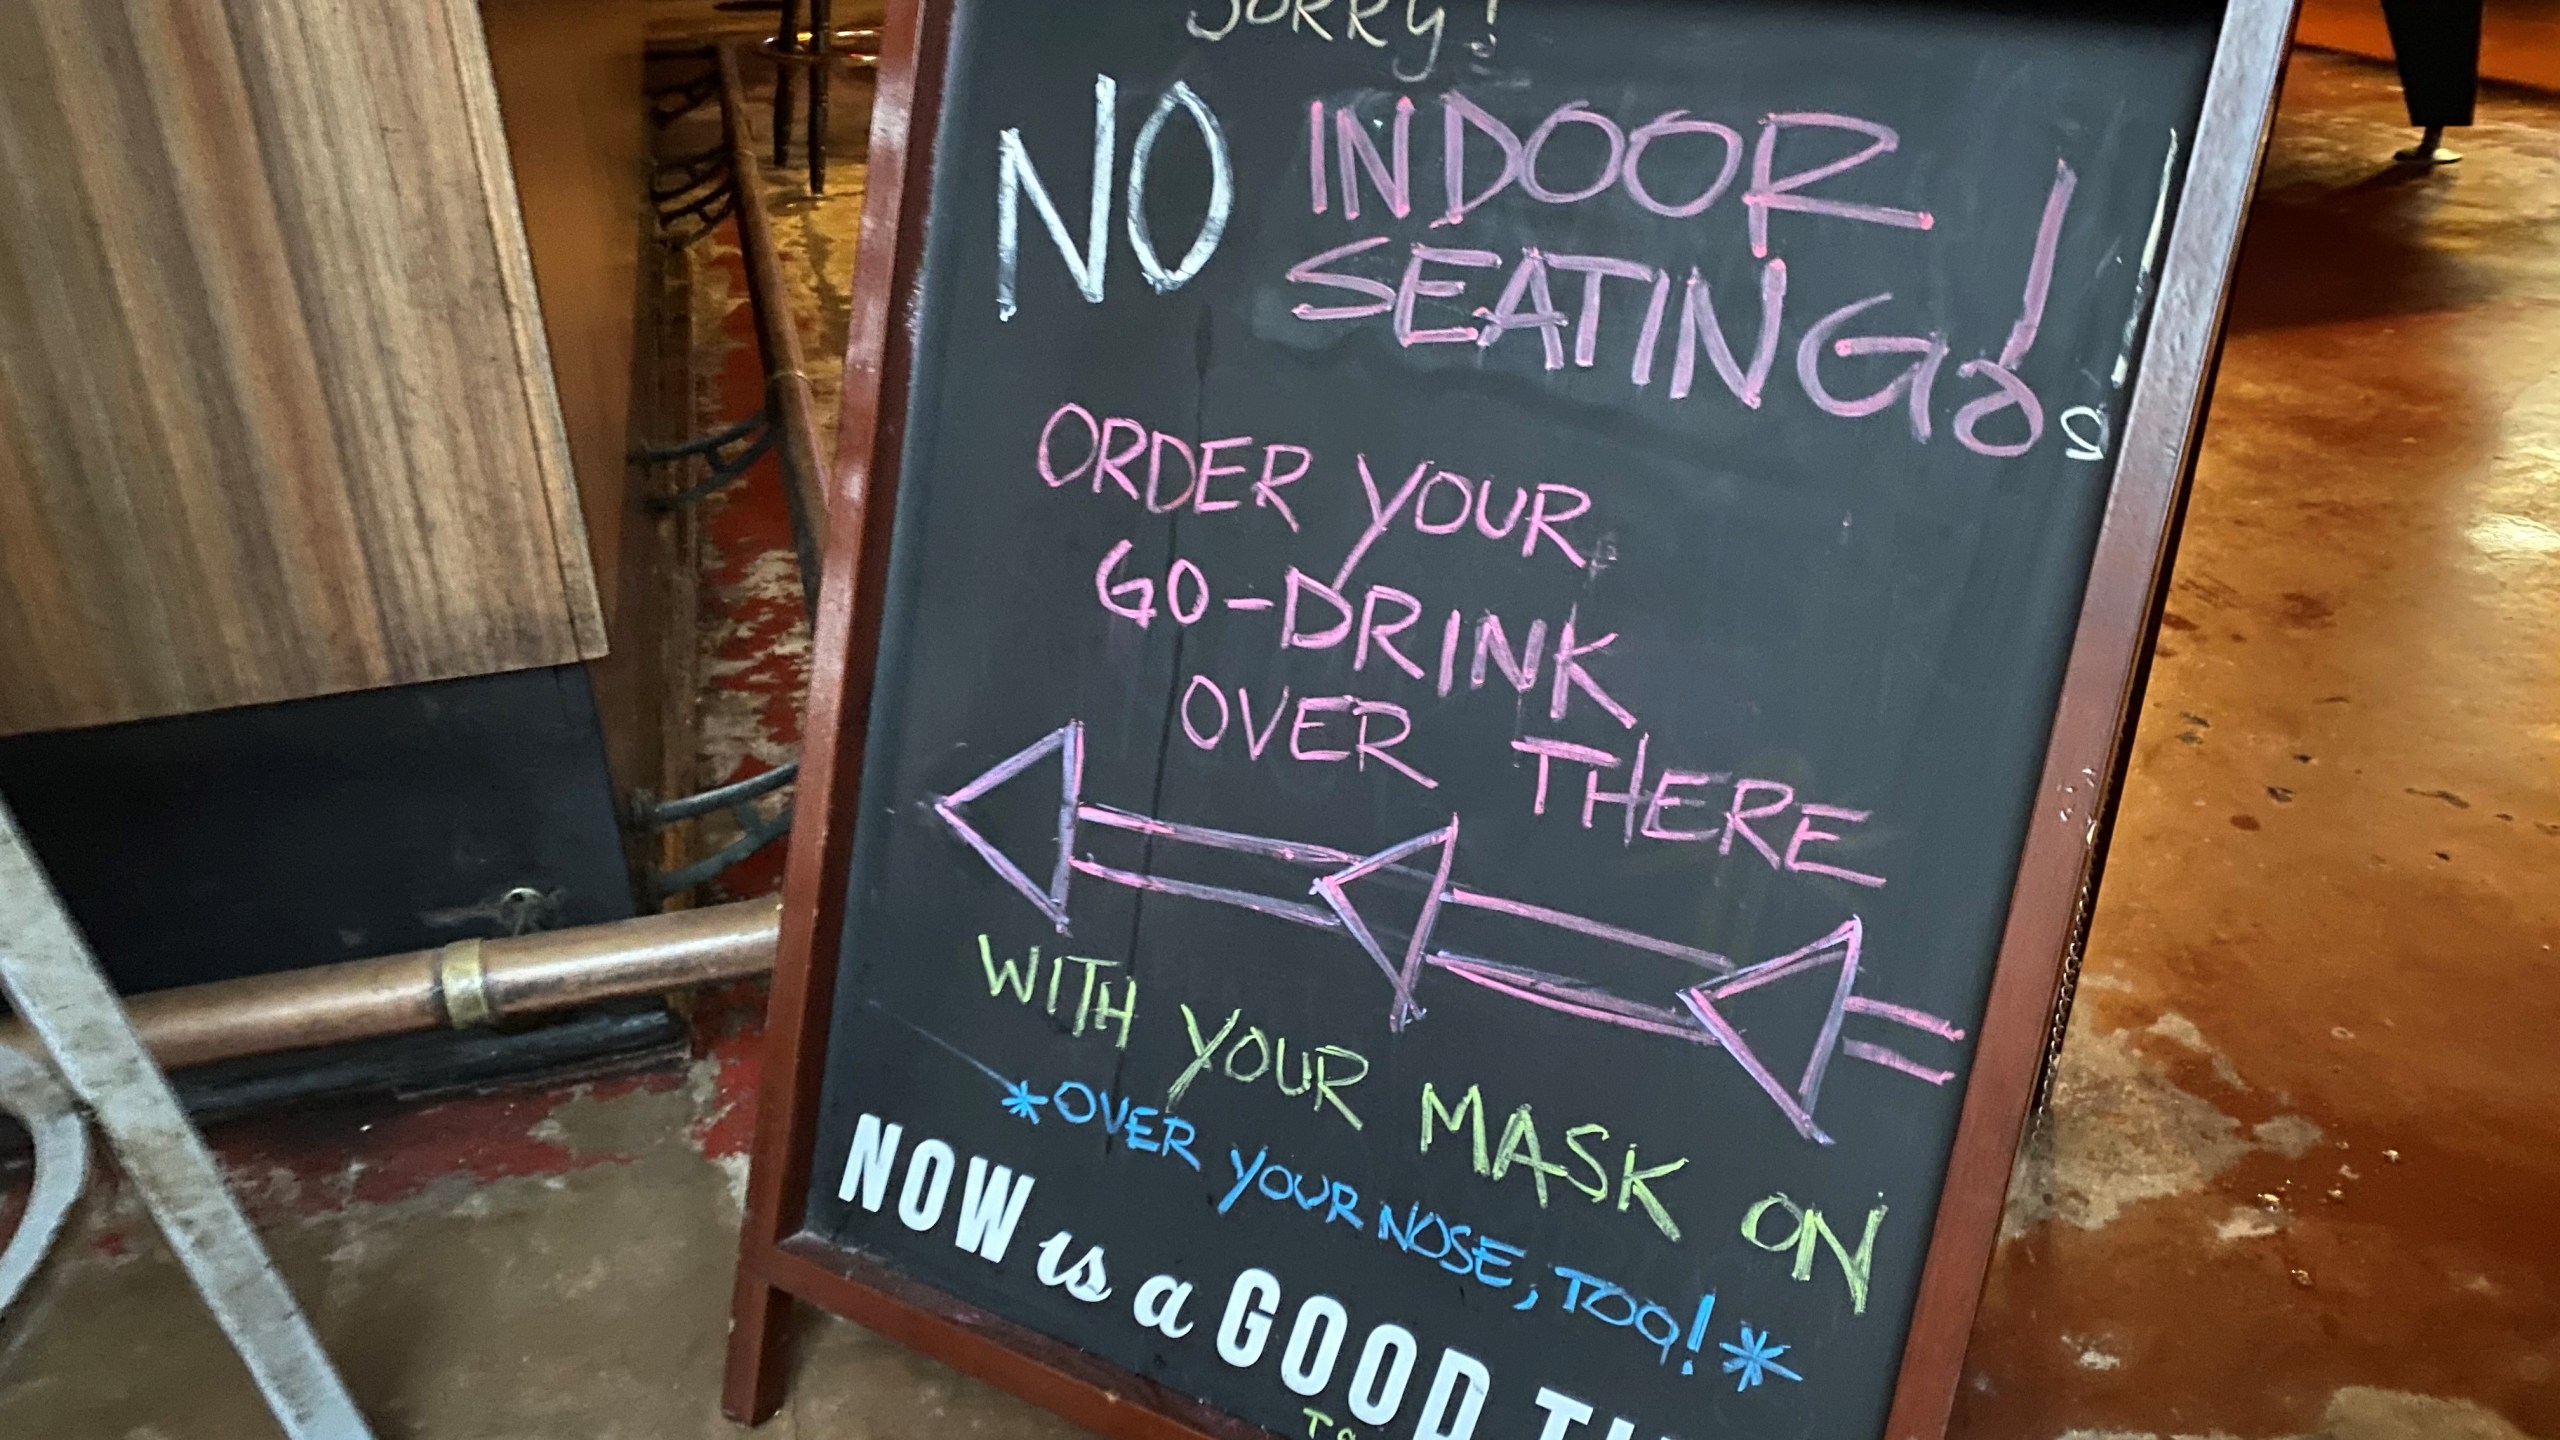 SORRY!
NO INDOOR
SEATING!
ORDER YOUR
GO-DRINK
OVER THERE
WITH YOUR MASK ON
*OVER YOUR NOSE, TOO!*
NOW is a GOOD